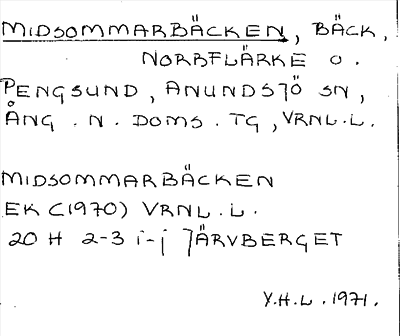 MIDSOMMARBÄCKEN, BÄCK,
NORRFLÄRKE O.
PENGSUND, ANUNDSJÖ SN,
ÅNG. N. DOMS. TG, VRNL. L.
MIDSOMMARBÄCKEN
EK (1970) VRNL. L.
20 H 2-3 i-j JÄRVBERGET
Y.H.L. 1971.